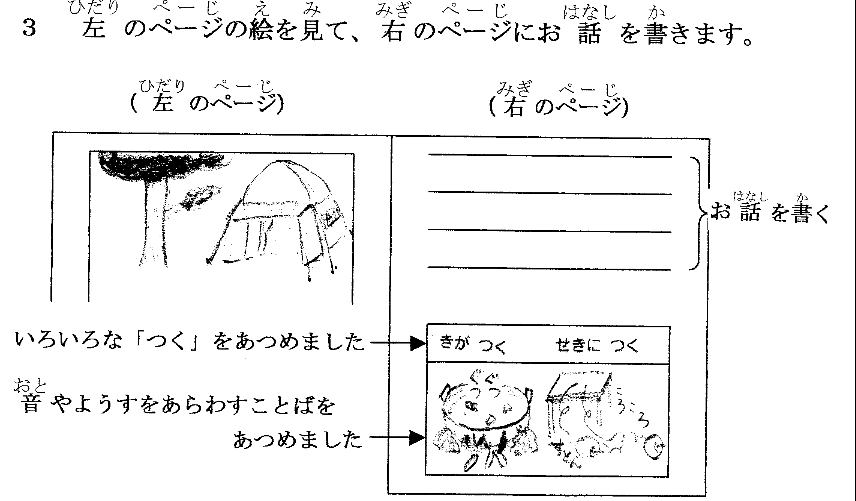 3 左のページの絵を見て、右のページにお話を書きます。
ひだり ぺーじ え み みぎ ぺーじ はなし か
(左のページ)
ひだり ぺーじ
(右のページ)
みぎ ぺーじ
お話を書く
はなし か
いろいろな「つく」をあつめました
きが つく せきに つく
音やようすをあらわすことばを
おと
あつめました
ぐぐ
つつ
ころころ